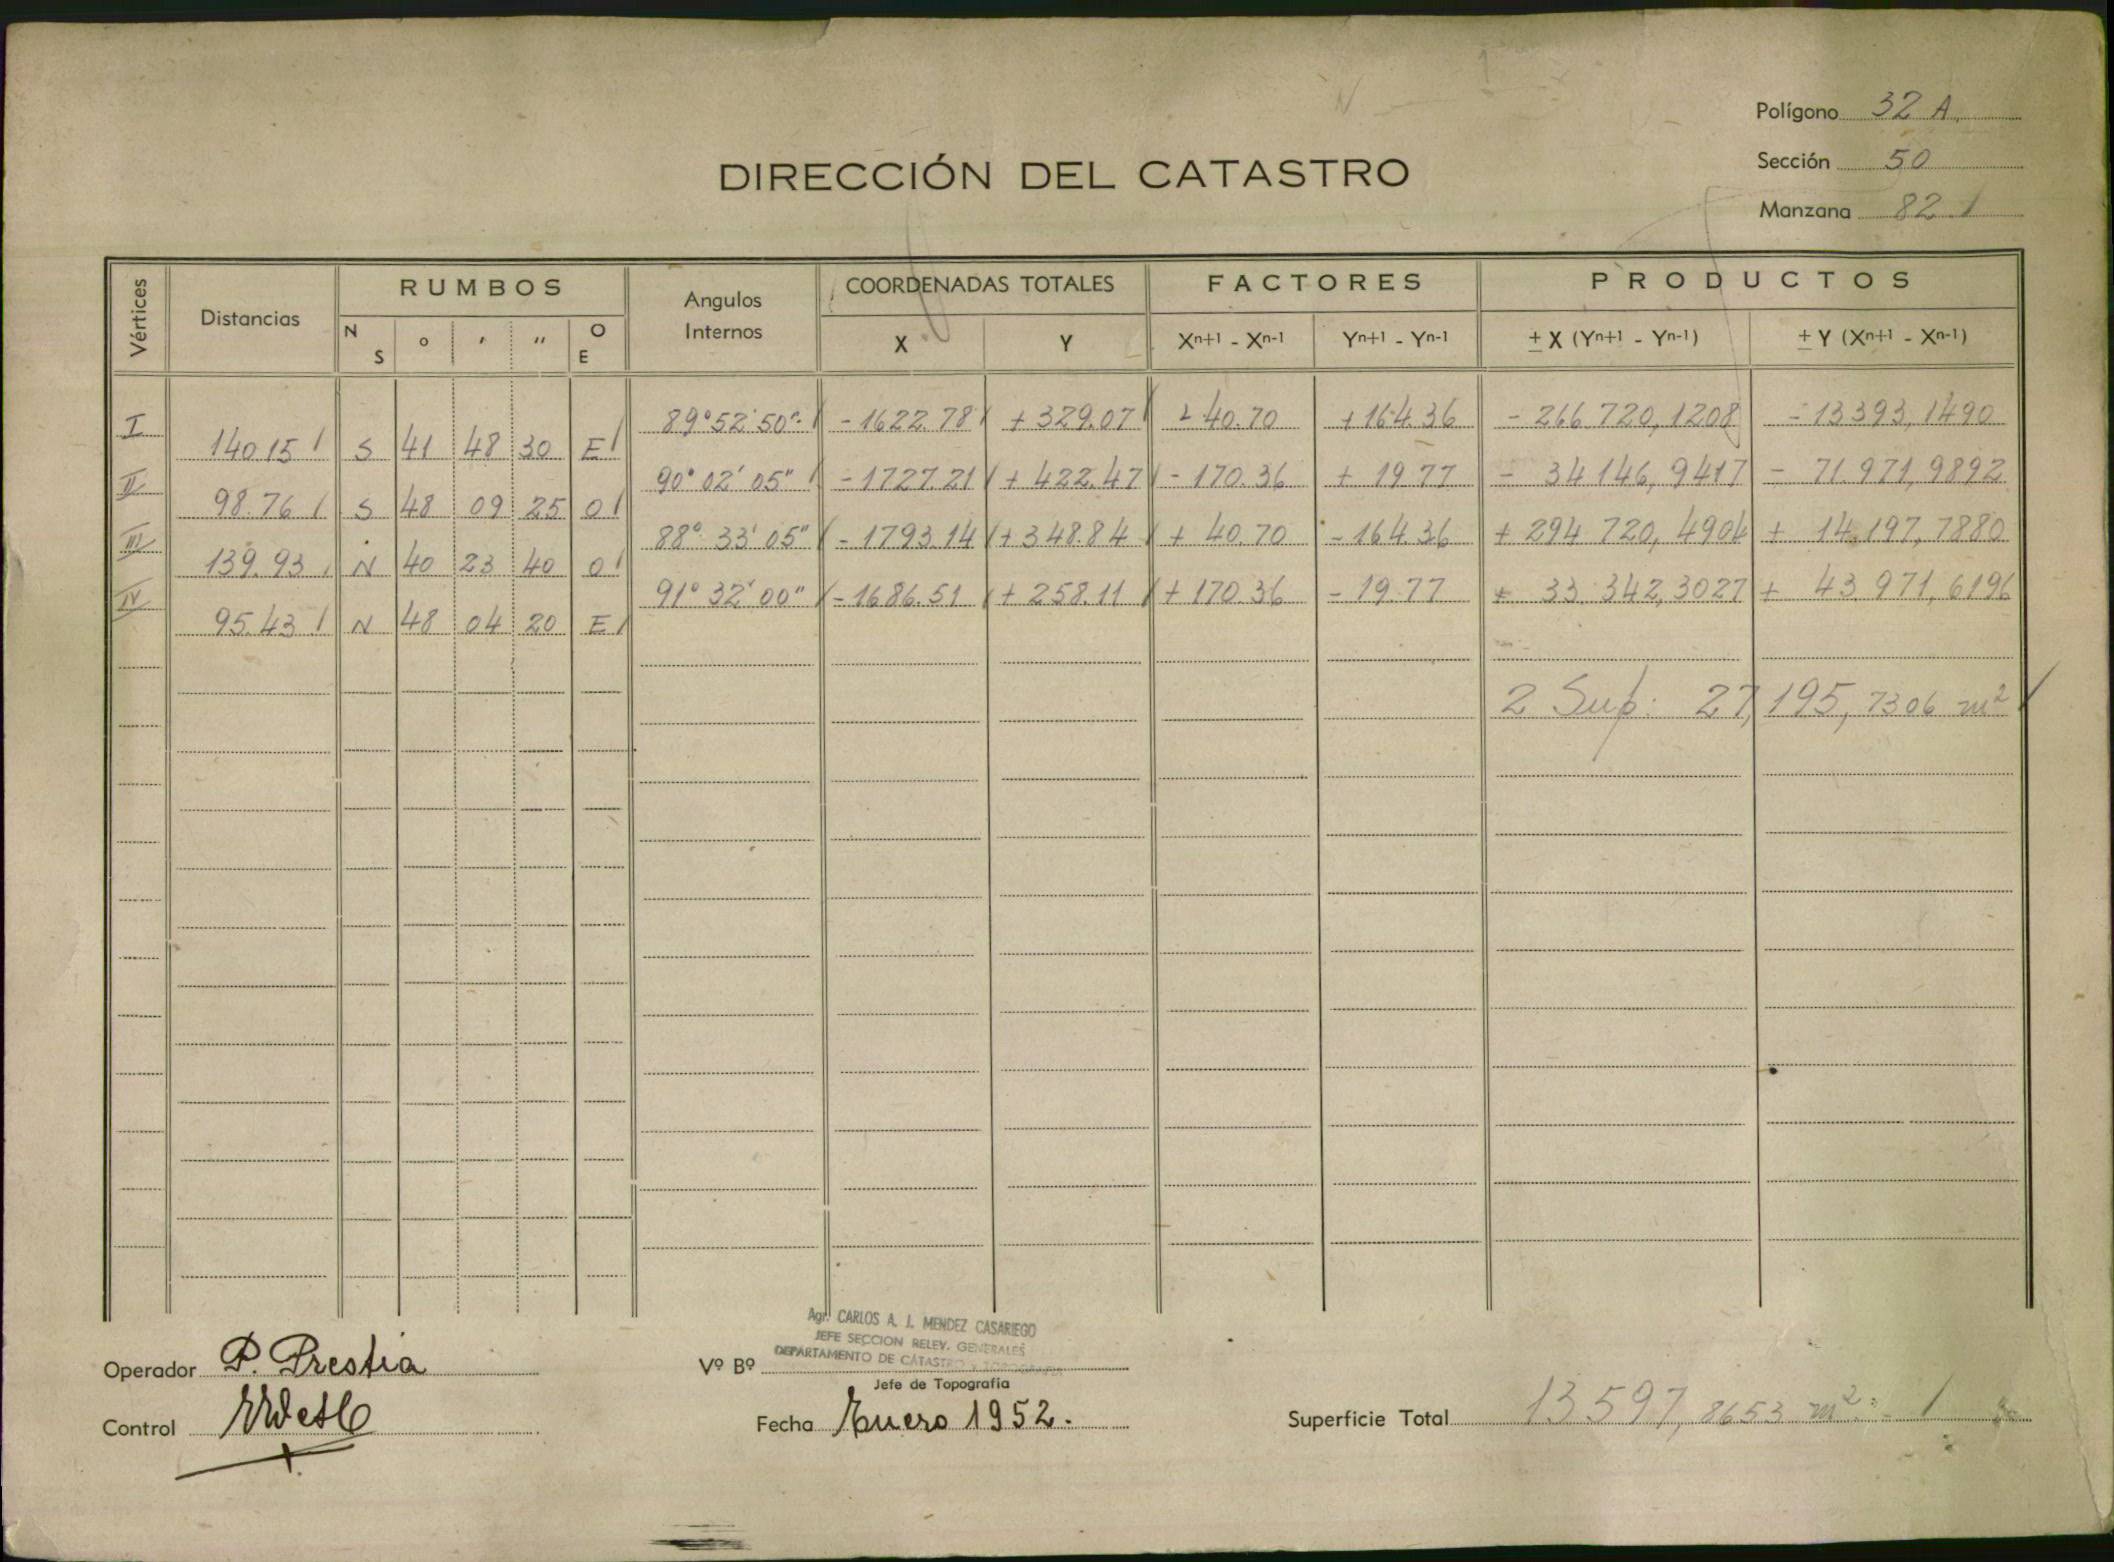 Polígono 32 A.
Sección 50
Manzana 82
DIRECCIÓN DEL CATASTRO
Vértices Distancias RUMBOS Angulos Internos COORDENADAS TOTALES FACTORES PRODUCTOS
N S ° ' " O E X Y Xn+1 - Xn-1 Yn+1 - Yn-1 ± X (Yn+1 - Yn-1) ± Y (Xn+1 - Xn-1)
I 89° 52' 50" - 1622.78 + 329.07 - 40.70 + 164.36 - 266 720,1208 - 13 393,1490
140.15 S 41 48 30 E
II 90° 02' 05" - 1727.21 + 422.47 - 170.36 + 19.77 - 34 146,9417 - 71.971,9892
98.76 S 48 09 25 O
III 88° 33' 05" - 1793.14 + 348.84 + 40.70 - 164.36 + 294 720,4904 + 14.197,7880
139.93 N 40 23 40 O
IV 91° 32' 00" - 1686.51 + 258.11 + 170.36 - 19.77 + 33.342,3027 + 43.971,6196
95.43 N 48 04 20 E
2 Sup: 27,195,7306 m²
Agr. CARLOS A. J. MENDEZ CASARIEGO
JEFE SECCION RELEV. GENERALES
DEPARTAMENTO DE CATASTRO Y TOPOGRAFIA
Operador P. Prestia Vº Bº
Jefe de Topografía
Control Fecha Enero 1952. Superficie Total 13 597,8653 m²